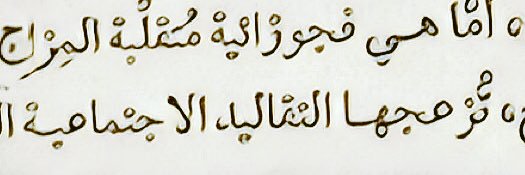 أمّا هي فجوزائية مُتقلّبة المِزاج
تُزعجها التقاليد الاجتماعية